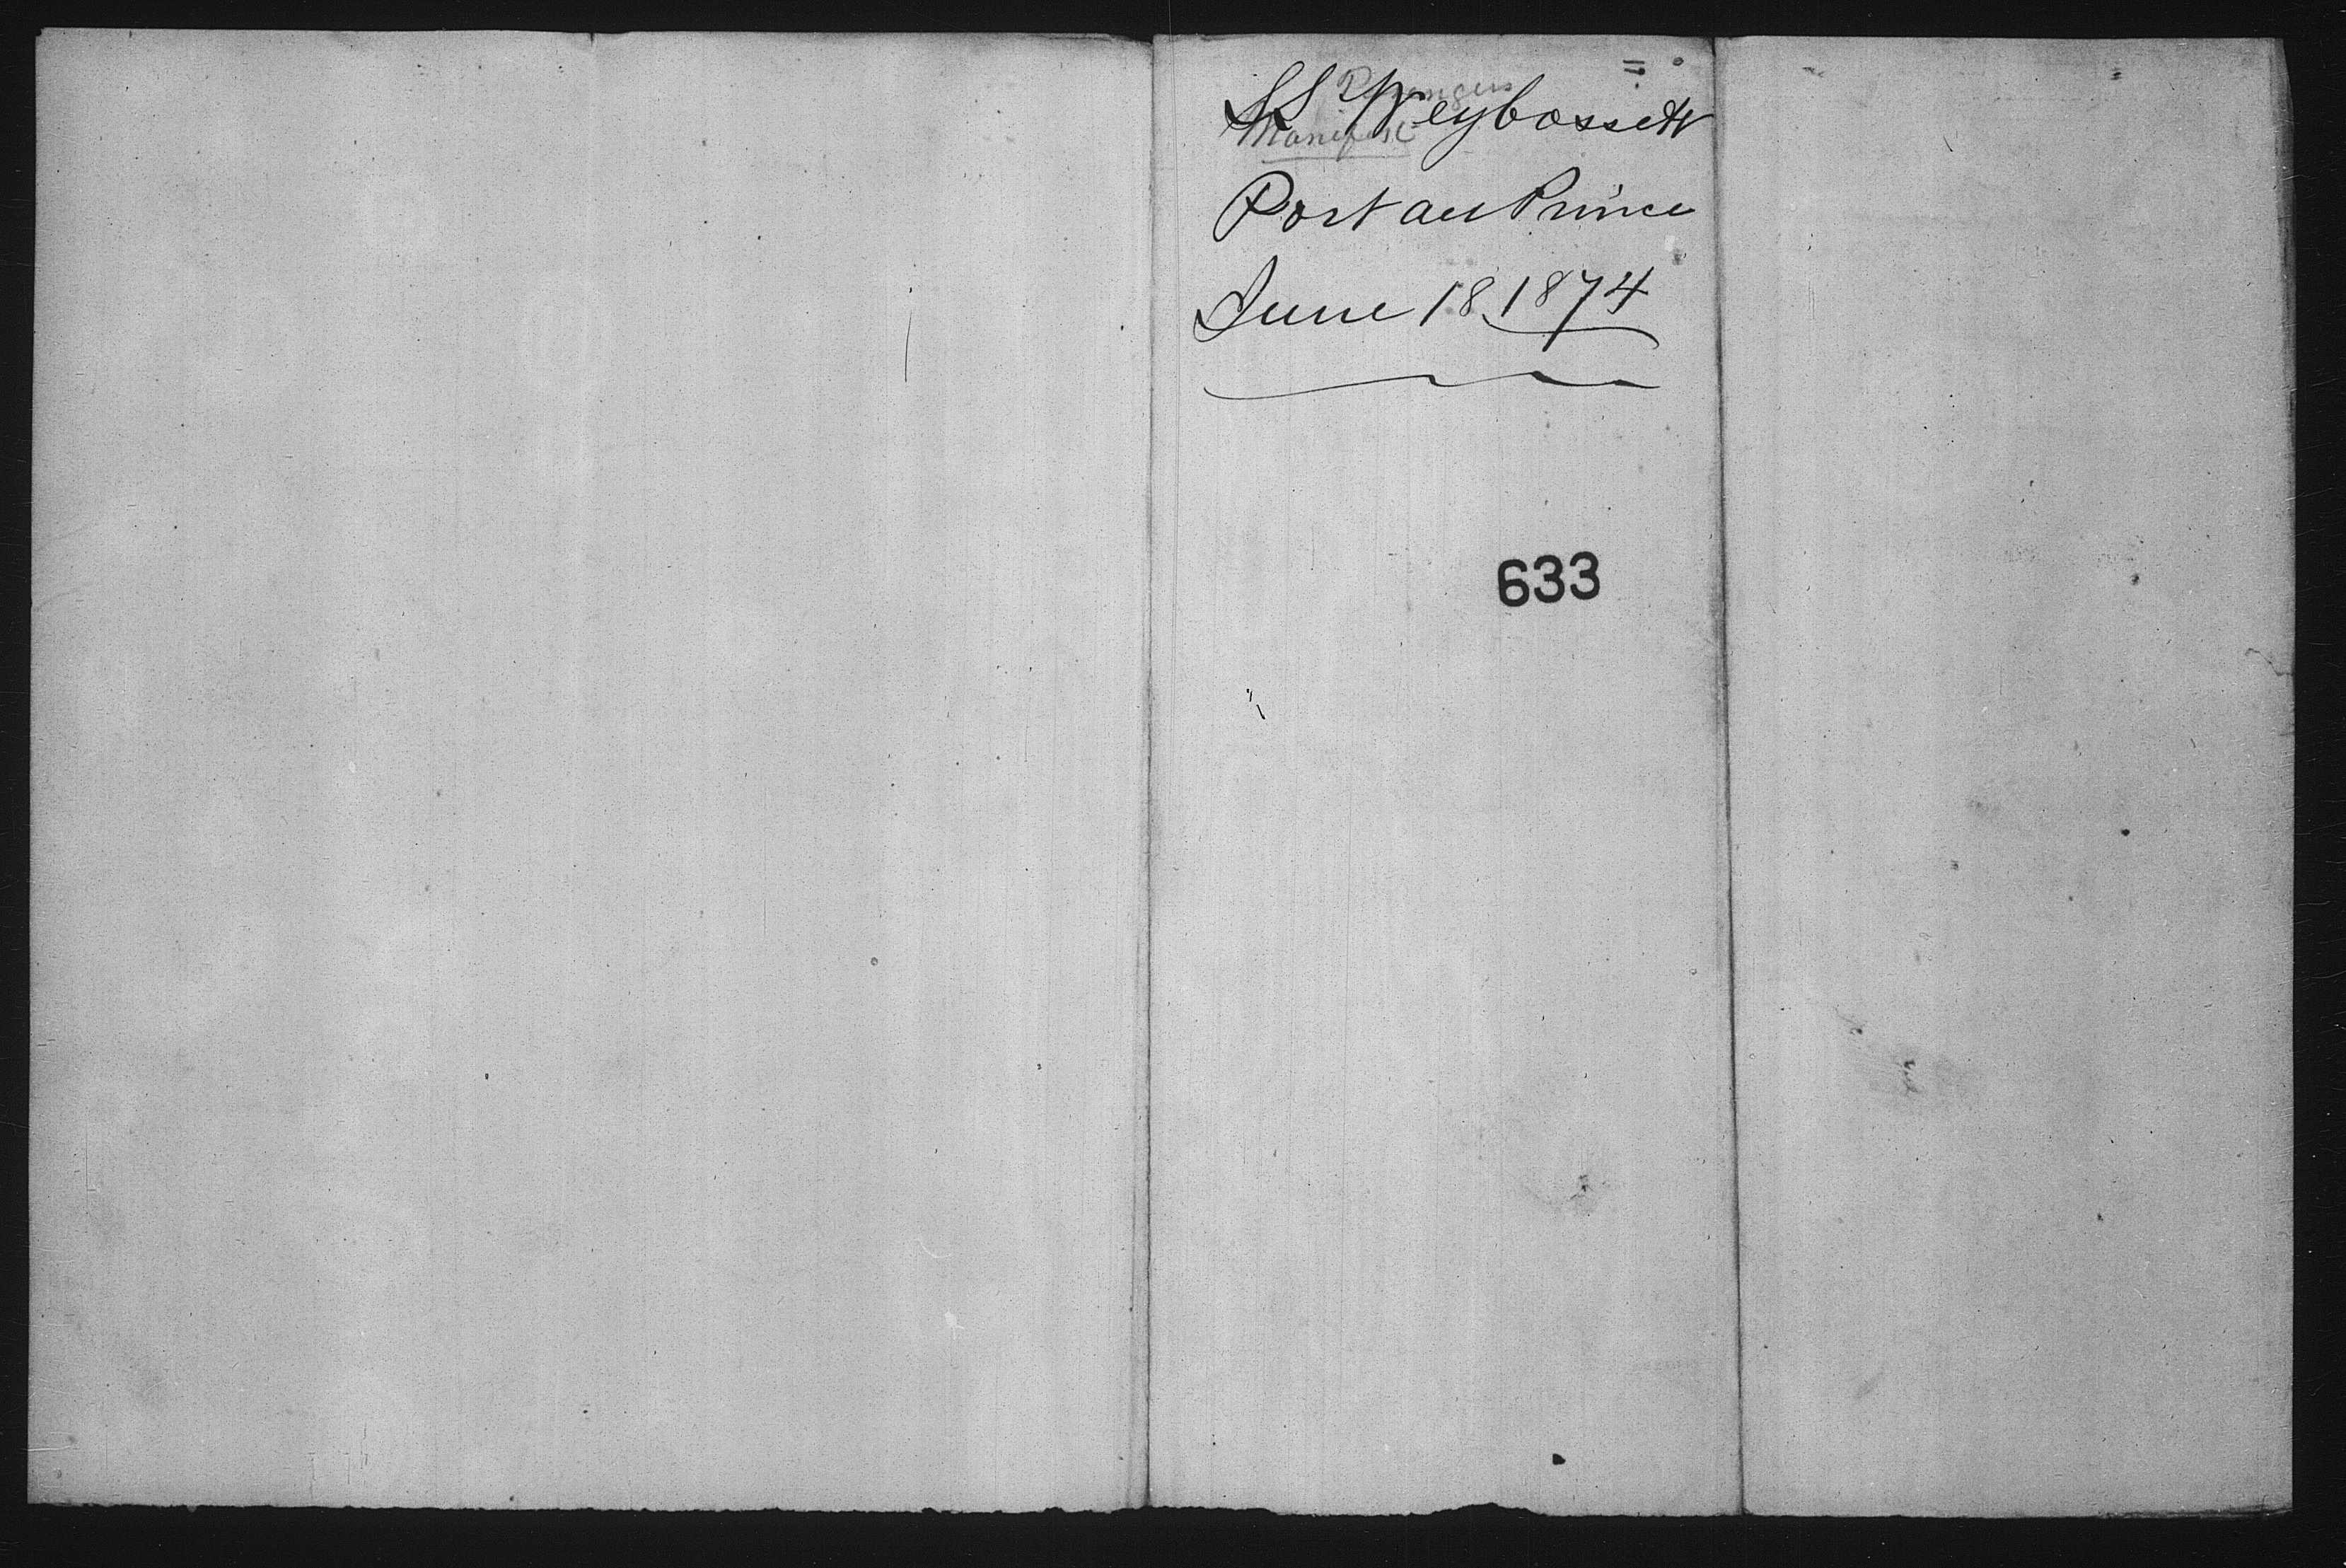 Passengers
Manifest
SS Weybossett
Port au Prince
June 18 1874
633